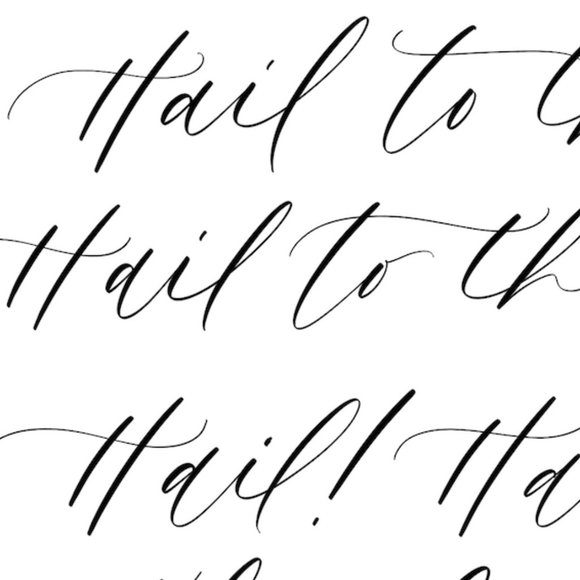 Hail to th
Hail to th
Hail! Ha